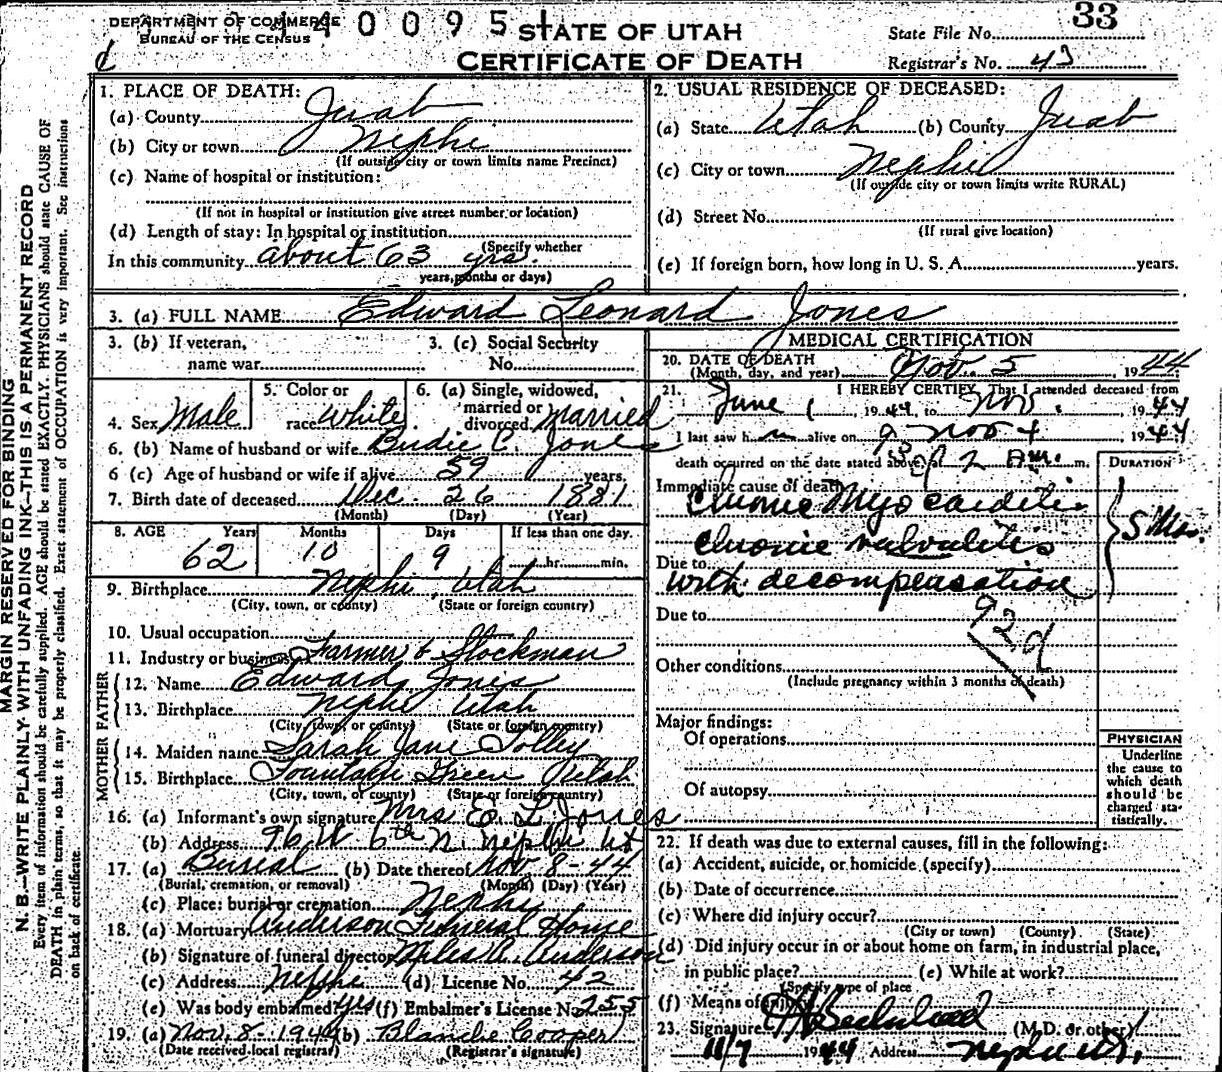 DEPARTMENT OF COMMERCE
BUREAU OF THE CENSUS
140095
STATE OF UTAH
CERTIFICATE OF DEATH
33
State File No.
Registrar's No. 43
MARGIN RESERVED FOR BINDING
N. B.—WRITE PLAINLY WITH UNFADING INK—THIS IS A PERMANENT RECORD
Every item of information should be carefully supplied. AGE should be stated EXACTLY. PHYSICIANS should state CAUSE OF
DEATH in plain terms, so that it may be properly classified. Exact statement of OCCUPATION is very important. See instructions
on back of certificate.
1. PLACE OF DEATH:
(a) County Juab
(b) City or town Nephi
(If outside city or town limits name Precinct)
(c) Name of hospital or institution:
(If not in hospital or institution give street number or location)
(d) Length of stay: In hospital or institution
(Specify whether
In this community about 63 yrs.
years, months or days)
2. USUAL RESIDENCE OF DECEASED:
(a) State Utah (b) County Juab
(c) City or town Nephi
(If outside city or town limits write RURAL)
(d) Street No.
(If rural give location)
(e) If foreign born, how long in U. S. A. years.
3. (a) FULL NAME Edward Leonard Jones
3. (b) If veteran,
name war
3. (c) Social Security
No.
4. Sex Male
5. Color or
race White
6. (a) Single, widowed,
married or
divorced Married
6. (b) Name of husband or wife Budie C. Jones
6 (c) Age of husband or wife if alive 59 years.
7. Birth date of deceased Dec. 26 1881
(Month) (Day) (Year)
8. AGE Years Months Days If less than one day.
62 10 9 hr. min.
9. Birthplace Nephi, Utah
(City, town, or county) (State or foreign country)
10. Usual occupation
11. Industry or business Farmer & Stockman
FATHER
12. Name Edward Jones
13. Birthplace Nephi Utah
(City, town, or county) (State or foreign country)
MOTHER
14. Maiden name Sarah Jane Tolley
15. Birthplace Fountain Green Utah
(City, town, or county) (State or foreign country)
16. (a) Informant's own signature Mrs E. L Jones
(b) Address 96 W 6th N. Nephi Ut
17. (a) Burial (b) Date thereof Nov 8-44
(Burial, cremation, or removal) (Month) (Day) (Year)
(c) Place: burial or cremation Nephi
18. (a) Mortuary Anderson Funeral Home
(b) Signature of funeral director Miles A. Anderson
(c) Address Nephi (d) License No. 42
(e) Was body embalmed? yes (f) Embalmer's License No. 255
19. (a) Nov. 8-1944 (b) Blanche Cooper
(Date received local registrar) (Registrar's signature)
MEDICAL CERTIFICATION
20. DATE OF DEATH
(Month, day, and year) Nov. 5, 1944
21. I HEREBY CERTIFY, That I attended deceased from
June 1, 1944, to Nov. 1944
I last saw h alive on Nov 4, 1944
death occurred on the date stated above, at 2 a.m. m.
DURATION
Immediate cause of death
Chronic Myocarditis
Chronic valvulitis
5 Mos.
Due to
with decompensation
Due to
92d
Other conditions
(Include pregnancy within 3 months of death)
Major findings:
Of operations
Of autopsy
PHYSICIAN
Underline
the cause to
which death
should be
charged sta-
tistically.
22. If death was due to external causes, fill in the following:
(a) Accident, suicide, or homicide (specify)
(b) Date of occurrence
(c) Where did injury occur?
(City or town) (County) (State)
(d) Did injury occur in or about home on farm, in industrial place,
in public place? (e) While at work?
(Specify type of place
(f) Means of injury
23. Signature (M.D. or other)
11/7 1944 Address Nephi Ut.